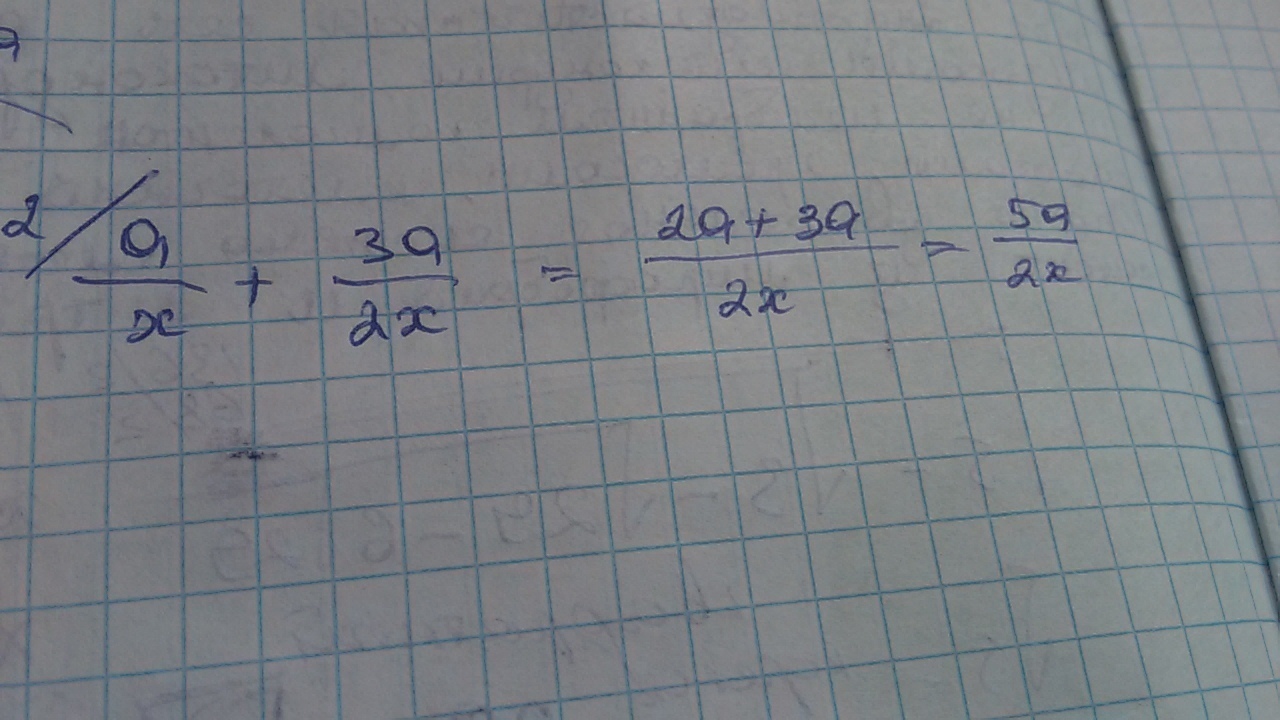 2/ a/x + 3a/2x = 2a + 3a/2x = 5a/2x